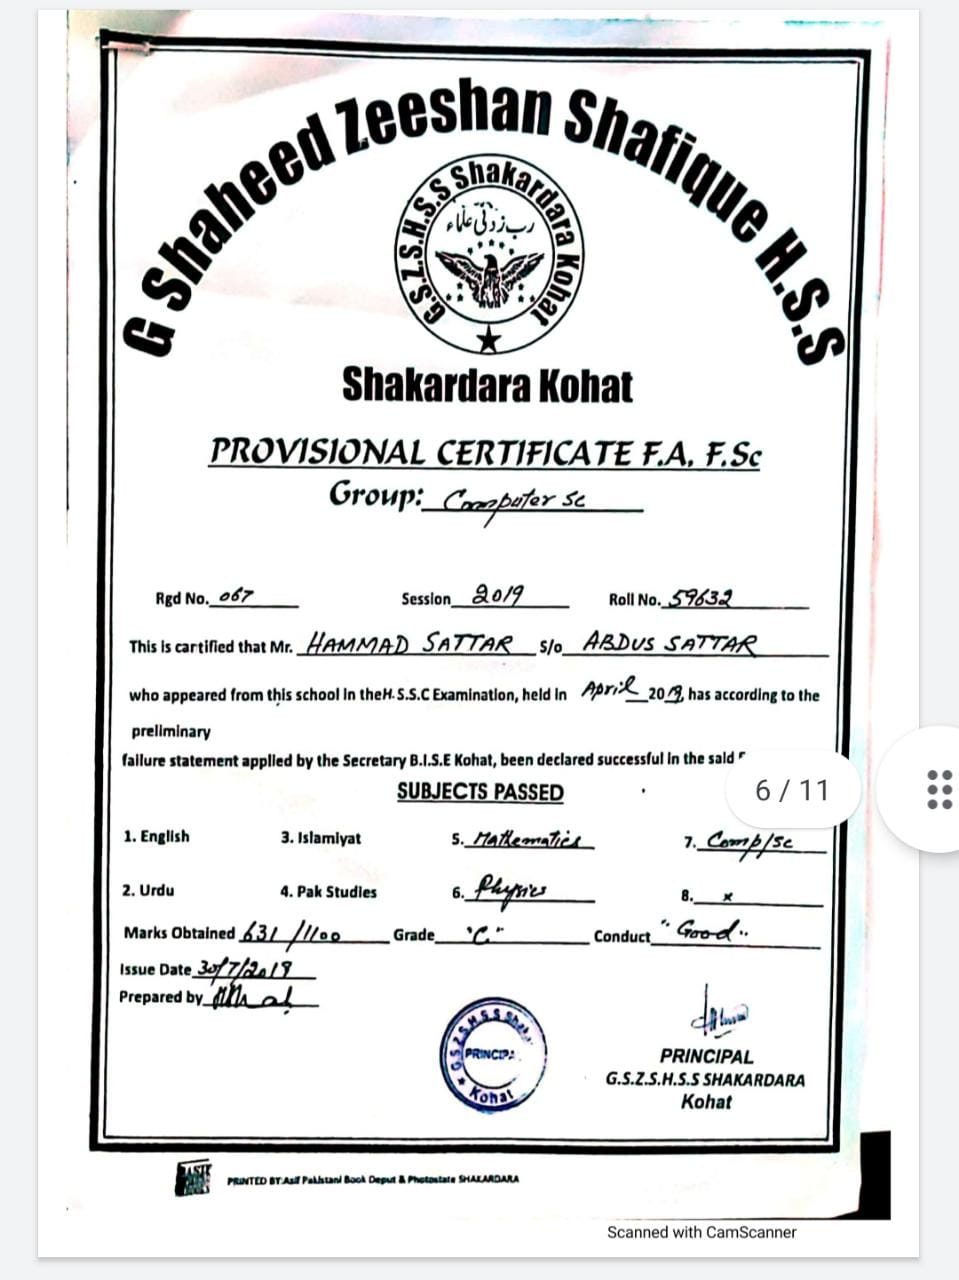 G Shaheed Zeeshan Shafique H.S.S
G.S.Z.S.H.S.S Shakardara Kohat
رب زدنی علماء
Shakardara Kohat
PROVISIONAL CERTIFICATE F.A, F.Sc
Group: Computer Sc
Rgd No. 067 Session 2019 Roll No. 59632
This is cartified that Mr. HAMMAD SATTAR S/o ABDUS SATTAR
who appeared from this school in theH.S.S.C Examination, held in April 2019, has according to the
preliminary
failure statement applied by the Secretary B.I.S.E Kohat, been declared successful in the said
SUBJECTS PASSED
6 / 11
1. English 3. Islamiyat 5. Mathematics 7. Comp/Sc
2. Urdu 4. Pak Studies 6. Physics 8. x
Marks Obtained 631/1100 Grade "C" Conduct "Good"
Issue Date 30/7/2019
Prepared by
G S Z S H S S
PRINCIPA
Kohat
PRINCIPAL
G.S.Z.S.H.S.S SHAKARDARA
Kohat
ASIF
PRINTED BY:Asif Pakistani Book Deput & Photostate SHAKARDARA
Scanned with CamScanner